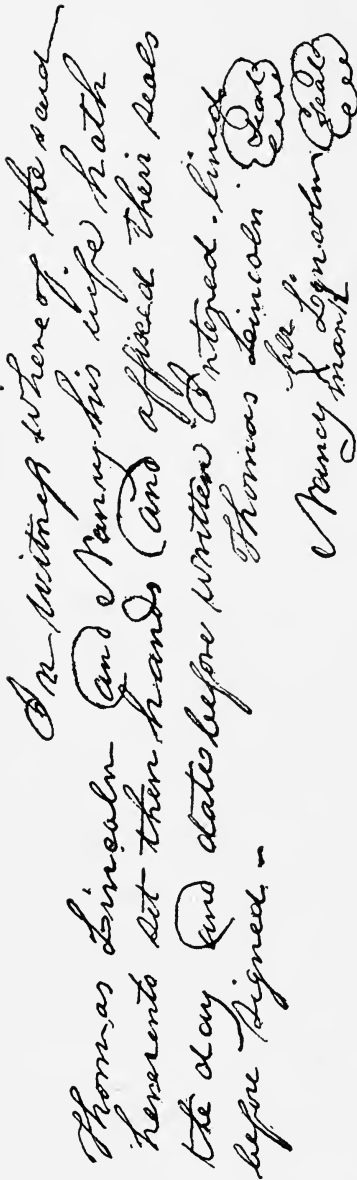 In witness where of the said
Thomas Lincoln and Nancy his wife hath
hereunto set their hands and affixed their seals
the day and date before written Entered-lined
before signed.-
Thomas Lincoln Seal
her
Nancy Lincoln Seal
mark